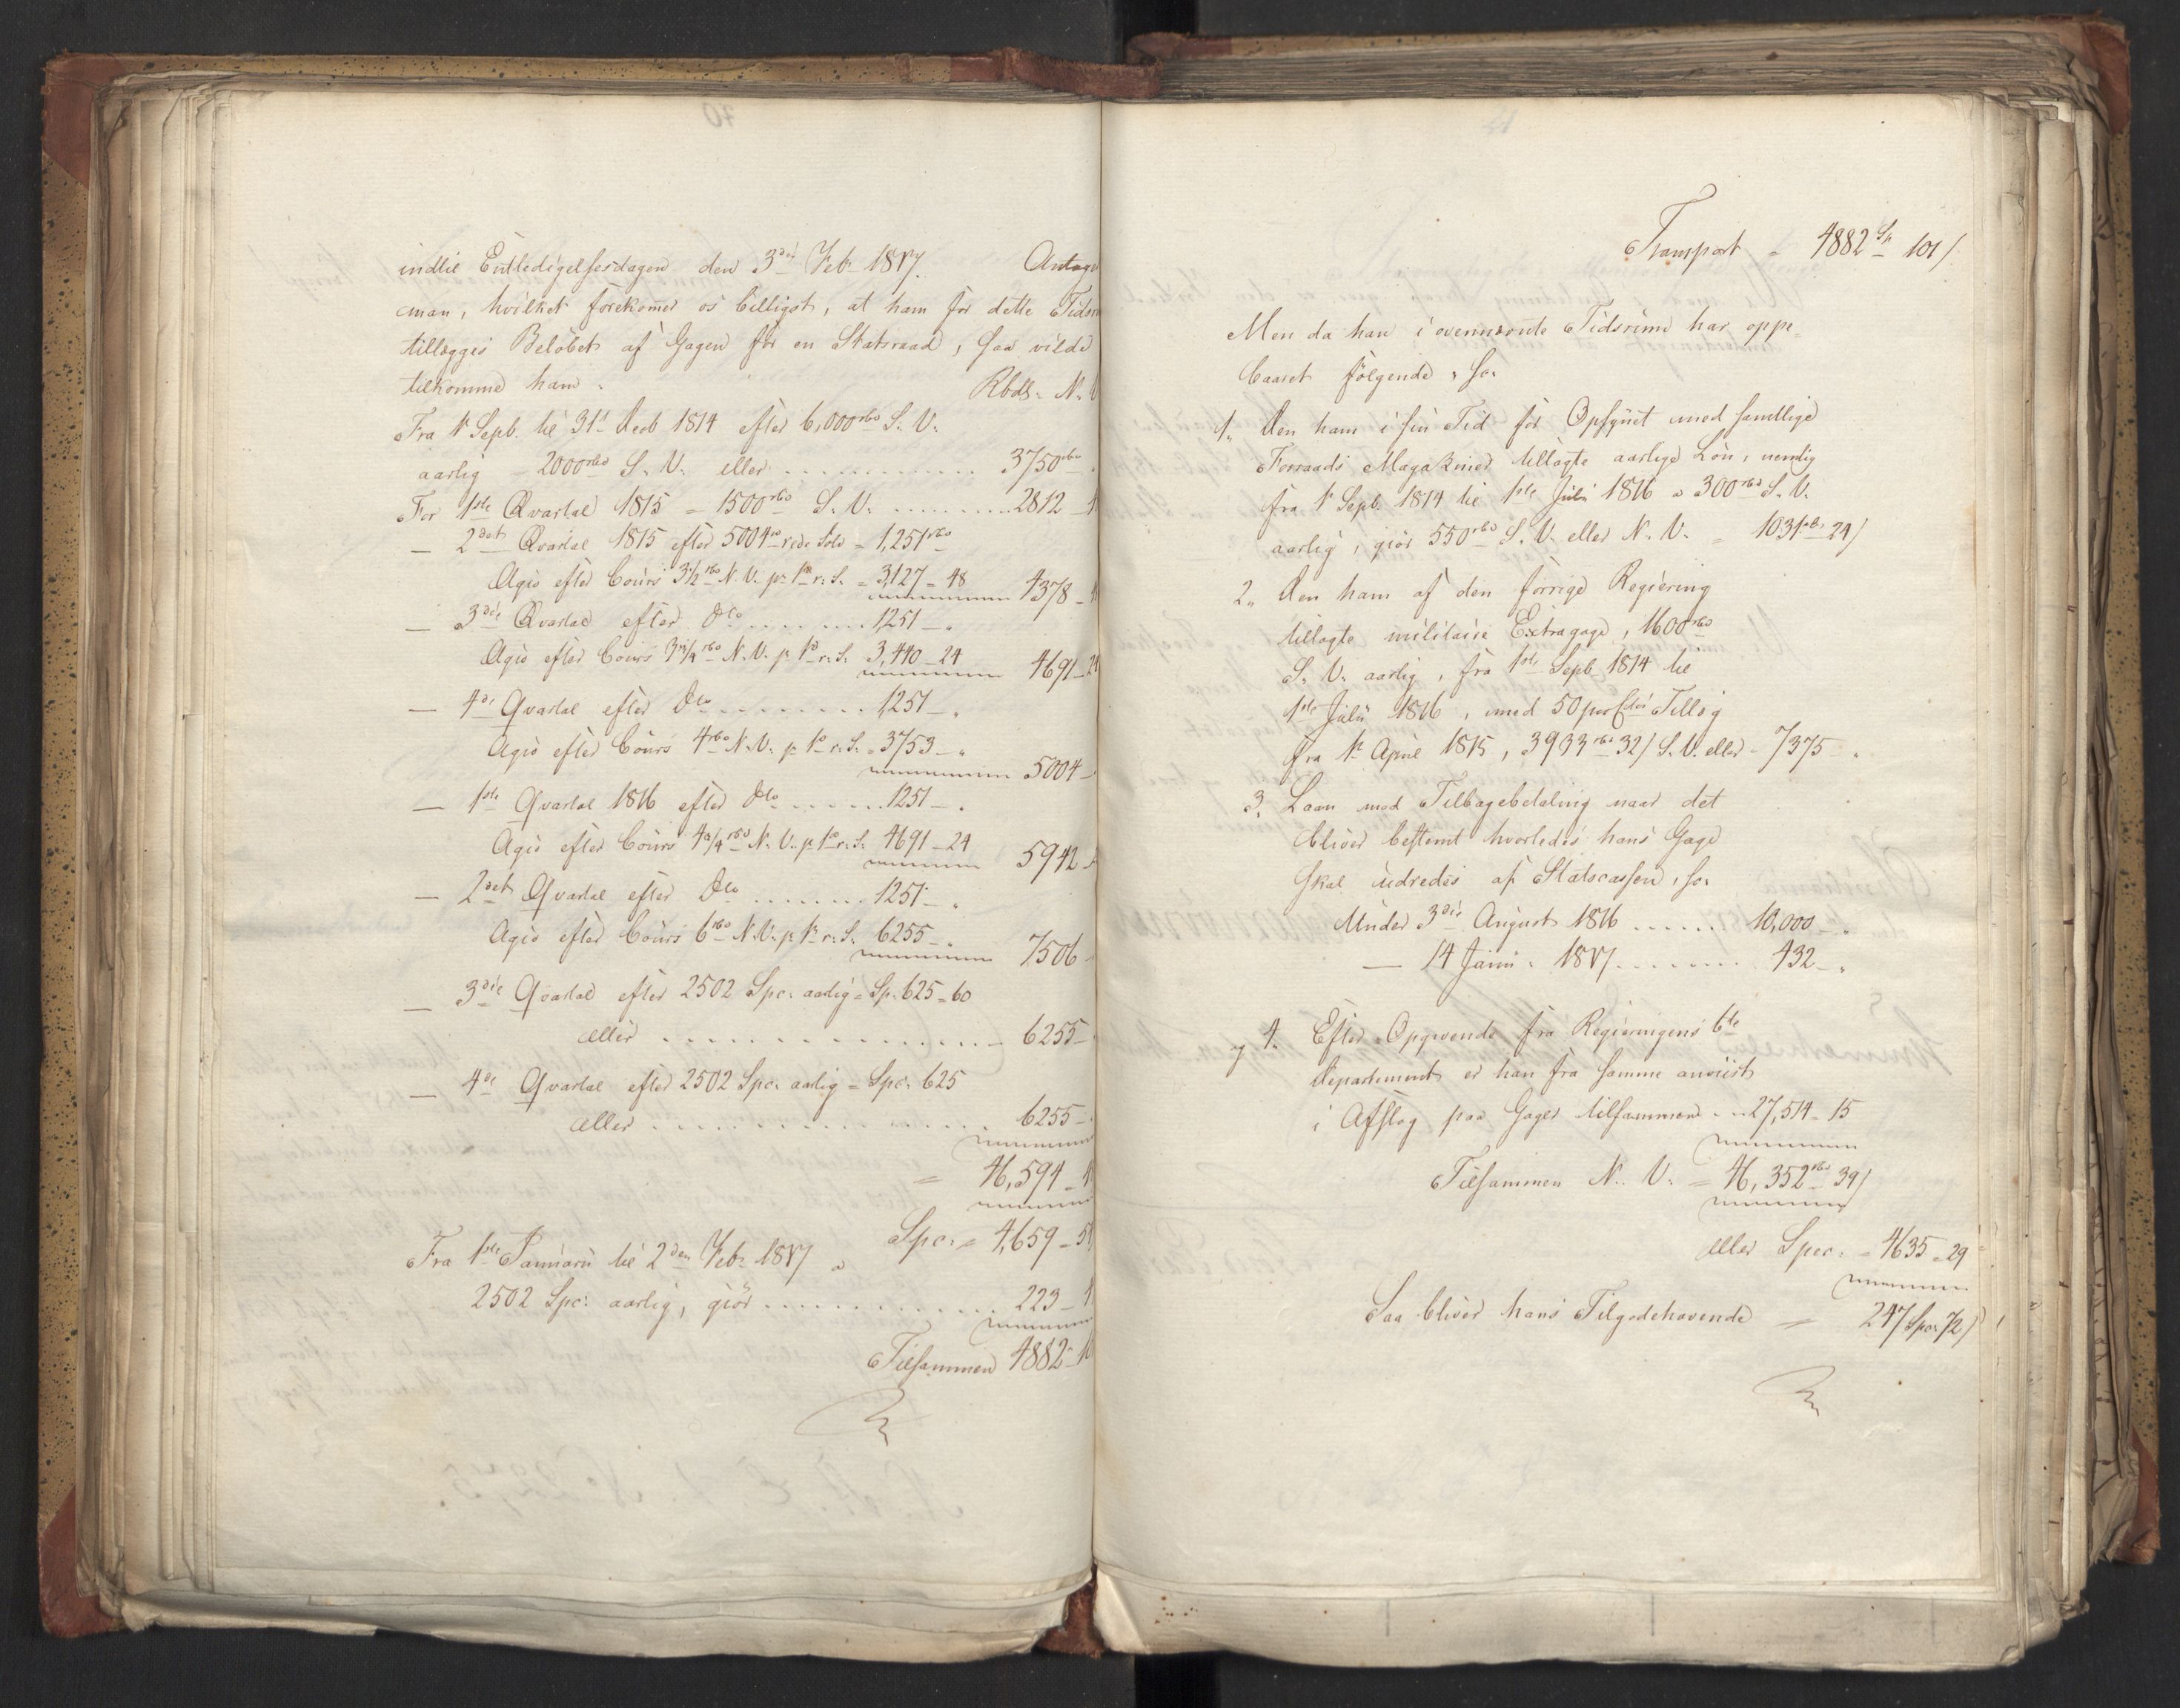 indtil Entledigelsesdagen den 3die Feb: 1817. Antage
man, hvilket forekommer os billigst, at ham for dette Tidsr
tillægges Beløbet af Gagen for en Statsraad, saa vilde
tilkomme ham: Rbdlr. N. V
Fra 1t Septb. til 31t Decb 1814 efter 6,000 rbd S. V.
aarlig = 2000 rbd S. V. eller . . . . . . . . . 3750 rbd
For 1ste Qvartal 1815 = 1500 rbd S. V. . . . . . . . . 2812 _ 4
— 2det Qvartal 1815 efter 5004 rbd rede Sølv = 1,251 rbd
Agio efter Cours 3 1/2 rbd N. V. pr 1 rd r. S. = 3,127 = 48 4378 _ 4
— 3die Qvartal efter Do . . . . . . 1251 _ „
Agio efter Cours 3 3/4 rbd N. V. p 1 rd r. S. 3,440 _ 24 4691 _ 24
— 4de Qvartal efter Do . . . . . . . . 1,251 _ „
Agio efter Cours 4 rbd N. V. p 1 rd r. S. = 3753 _ „
5004 _
— 1ste Qvartal 1816 efter Do . . . . . . 1251 _ „
Agio efter Cours 4 3/4 rbd N. V. p 1 rd r. S. 4691 _ 24 5942 _
— 2det Qvartal efter Do . . . . . . . 1251 _ „
Agio efter Cours 6 rbd N. V. p 1 rd r. S. 6255 _ „ 7506 _
— 3die Qvartal efter 2502 Spc: aarlig = Sp. 625 = 60
eller . . . . . . . . . . . . . . . 6255 _
— 4de Qvartal efter 2502 Spc: aarlig = Spc: 625
eller . . . . . . . . . . . . . . . 6255 _
= 46,594 _ 4
Spc: = 4,659 _ 51
Fra 1ste Januarii til 2den Feb: 1817 a
2502 Spc: aarlig, giør . . . . . . . . . . . . 223 _ 4
Tilsammen 4882 _ 10
Transport = 4882 Sp 101/
Men da han i ovennævnte Tidsrum har oppe-
baaret følgende, so:
1„ Den ham i sin Tid for Opsynet med samtlige
Forraads Magaziner tillagte aarlige Løn, nemlig
fra 1t Septb. 1814 til 1ste Julii 1816 a 300 rbd S. V.
aarlig, giør 550 rbd S. V. eller N. V. = 1031 rbd 24/
2„ Den ham af den forrige Regiering
tillagte militaire Extragage, 1600 rbd
S. V. aarlig, fra 1ste Septb 1814 til
1ste Julii 1816, med 50 per Ctos Tillæg
fra 1t April 1815, 3933 rbd 32/ S. V. eller = 7375 „
3, Laan mod Tilbagebetaling naar det
bliver bestemt hvorledes hans Gage
skal udredes af Statscassen, so:
Under 3die August 1816 . . . . . . 10,000 _ „
— 14 Janu: 1817 . . . . . . . 432 _ „
og 4. Efter Opgivende fra Regieringens 6te
Departement er han fra samme anviist
i Afslag paa Gager tilsammen . . 27,514 = 15
Tilsammen N. V. = 46,352 rbd 39/
eller Spec: = 4635 = 29
Saa bliver hans Tilgodehavende = 247 Spc: 72/